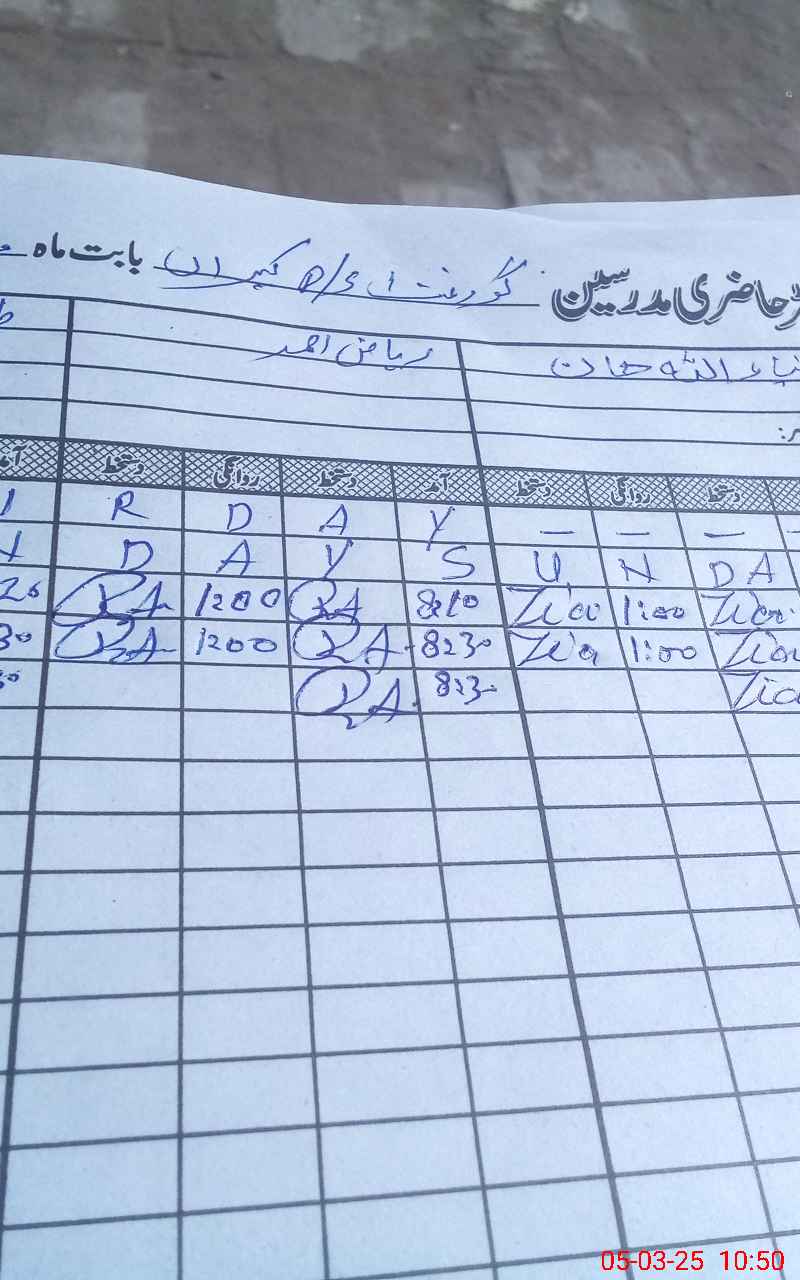 حاضری مدرسین گورنمنٹ بابت ماہ
ریاض احمد
اللہ خان
دستخط روانگی دستخط آمد دستخط روانگی دستخط
R D A Y — — —
D A Y S U N D A
RA 1200 RA 8:10 Zia 1:00 Zia
30 RA 1200 RA 8:30 Zia 1:00 Zia
RA 8:30 Zia
05-03-25 10:50